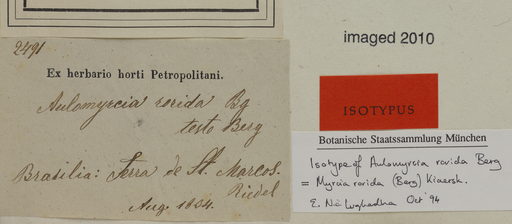 2491
Ex herbario horti Petropolitani.
Aulomyrcia rorida Bg
teste Berg
Brasilia: Serra de St. Marcos.
Riedel
Aug. 1834.
imaged 2010
ISOTYPUS
Botanische Staatssammlung München
Isotype of Aulomyrcia rorida Berg
= Myrcia rorida (Berg) Kiaersk.
E. Nic Lughadha Oct '94